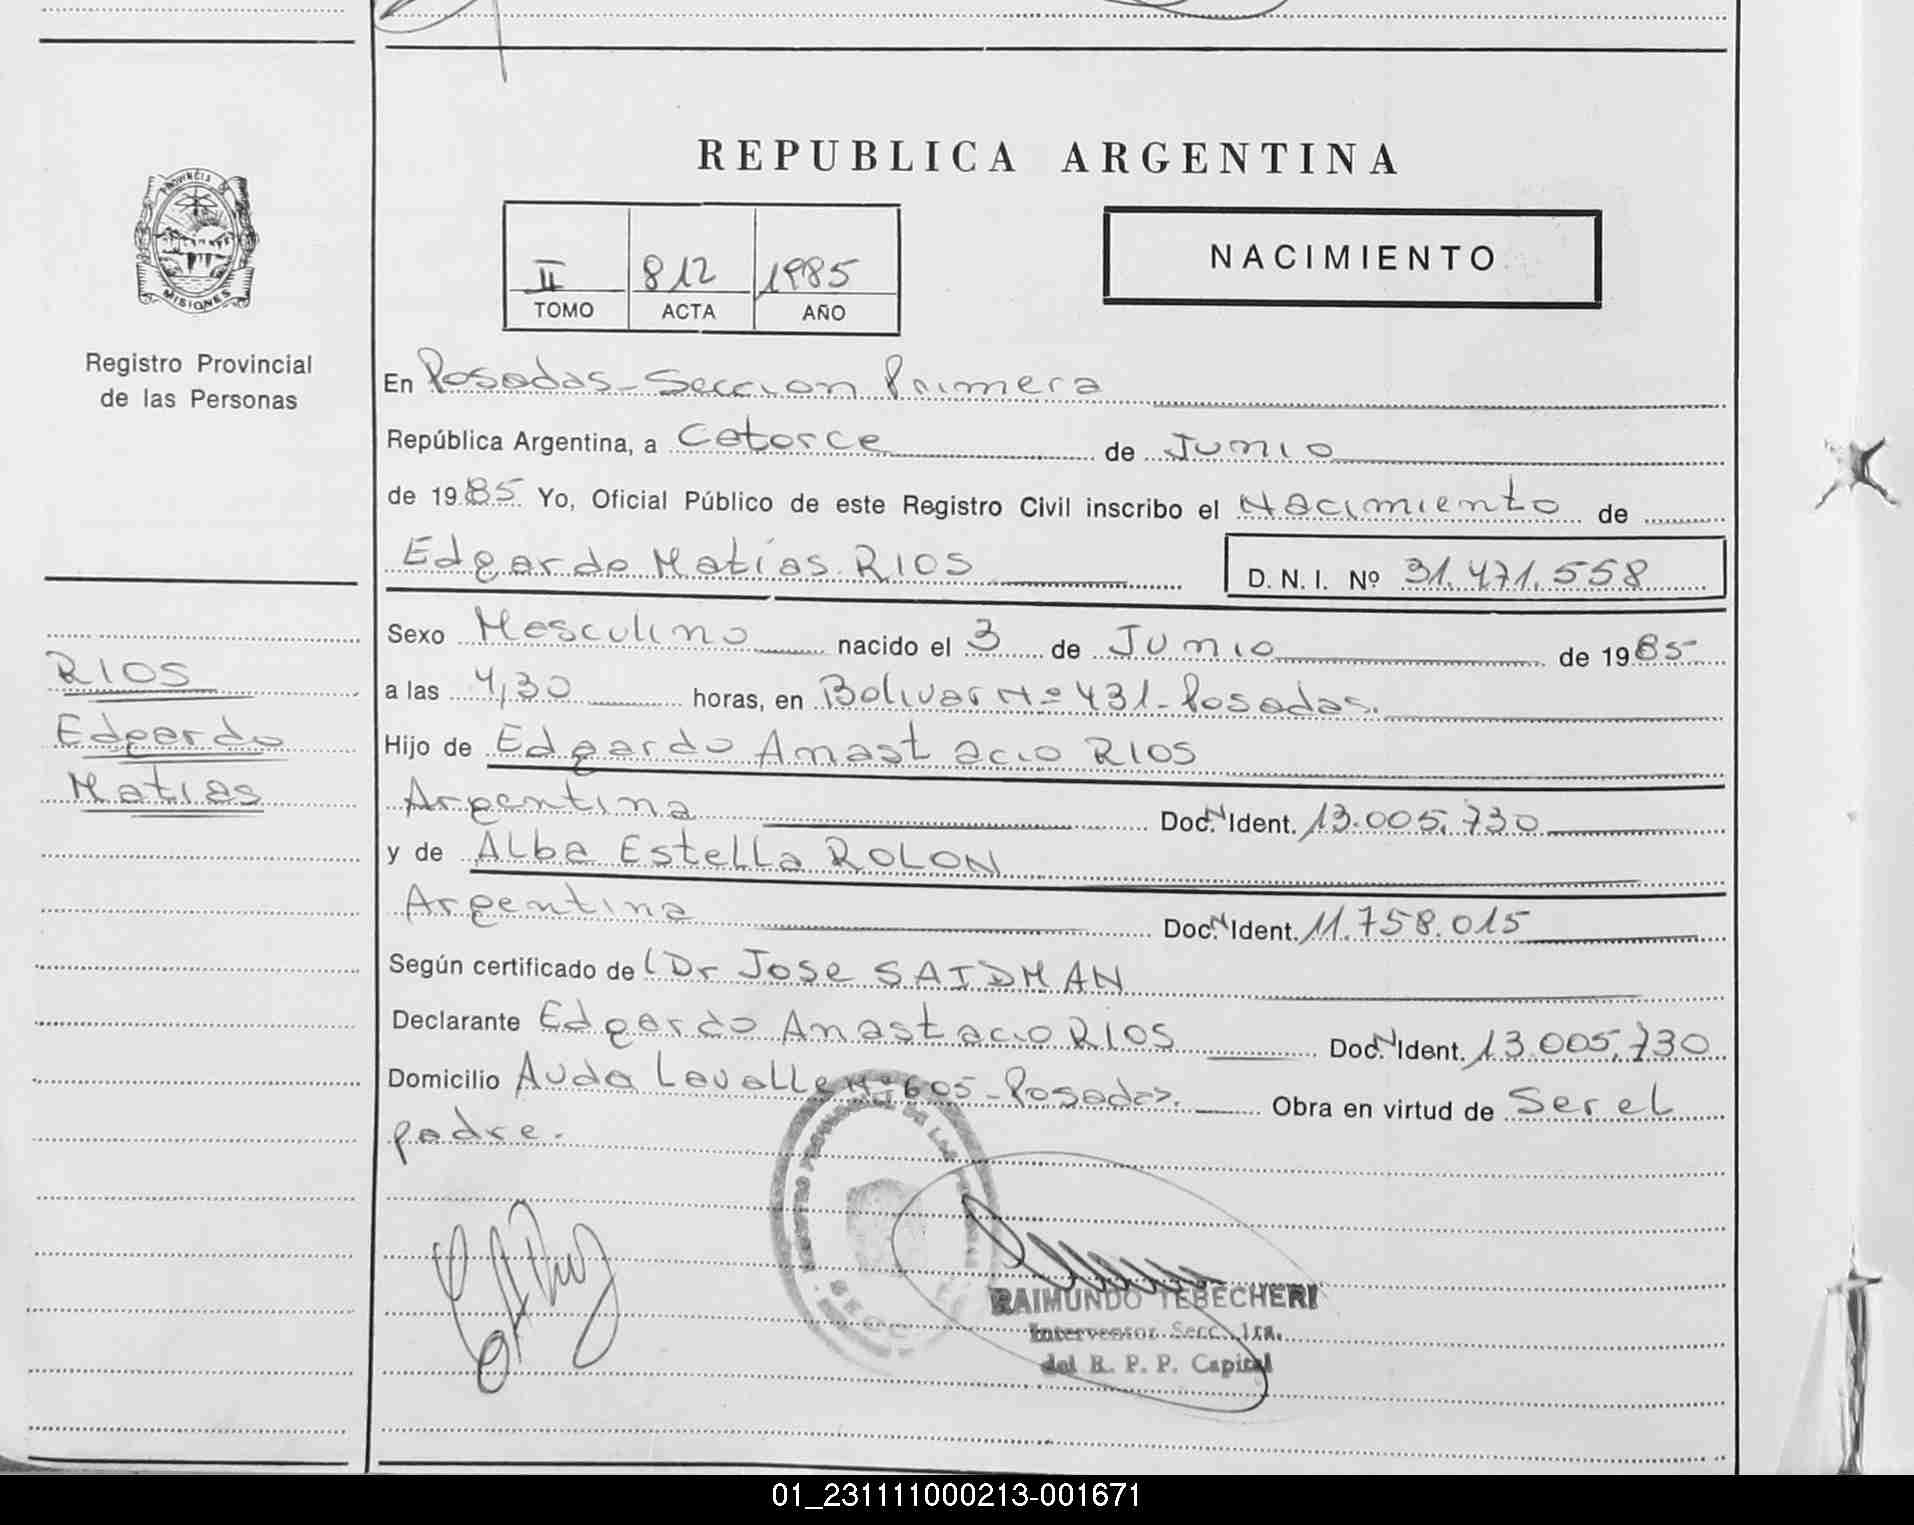 REPUBLICA ARGENTINA
PROVINCIA DE
MISIONES
Registro Provincial
de las Personas
II 812 1985
TOMO ACTA AÑO
NACIMIENTO
En Posadas - Seccion Primera
República Argentina, a Catorce de Junio
de 1985 Yo, Oficial Público de este Registro Civil inscribo el Nacimiento de
Edgardo Matías RIOS D. N. I. Nº 31.471.558
Sexo Masculino nacido el 3 de Junio de 1985
RIOS
Edgardo
Matias
a las 4,30 horas, en Bolivar Nº 431 - Posadas.
Hijo de Edgardo Anastacio RIOS
Argentina Doc. N Ident. 13.005.730
y de Alba Estella ROLON
Argentina Doc. N Ident. 11.758.015
Según certificado de (Dr Jose SAIDMAN
Declarante Edgardo Anastacio RIOS Doc. N Ident. 13.005.730
Domicilio Avda Lavalle Nº 605 - Posadas. Obra en virtud de Ser el
padre.
REGISTRO PROVINCIAL DE LAS
RAIMUNDO TEBECHERI
Interventor Secc. 1ra.
del R. P. P. Capital
01_231111000213-001671